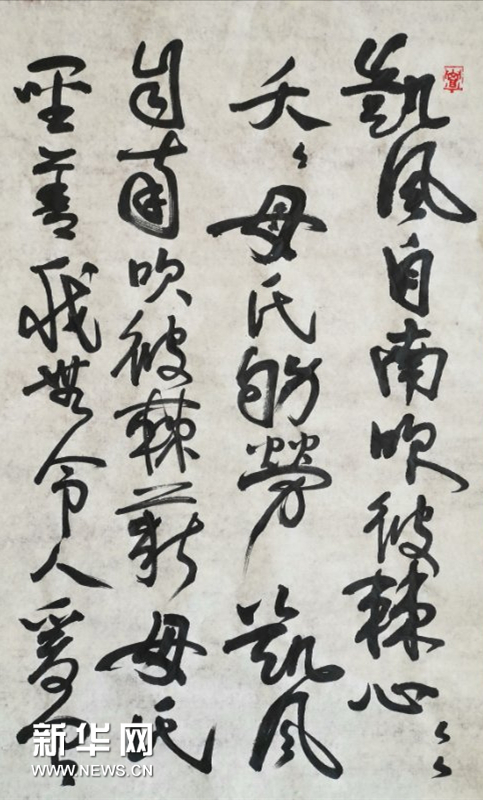 凱風自南吹彼棘心〻〻
夭〻母氏劬勞凱風
自南吹彼棘薪母氏
聖善我無令人爰
新华网
WWW.NEWS.CN